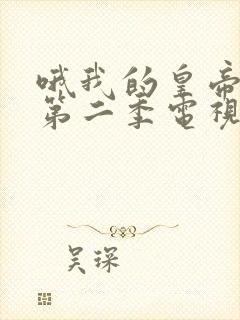 哦我的皇帝
第二季電視
吴琛